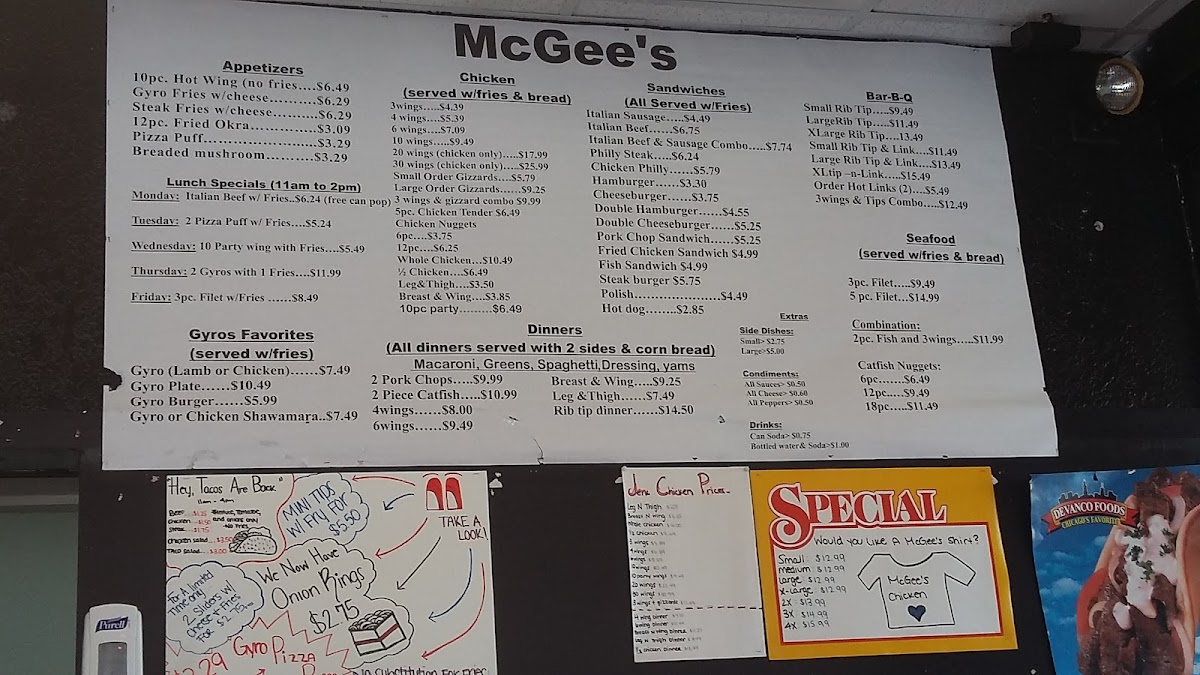 McGee's
Appetizers
10pc. Hot Wing (no fries....$6.49
Gyro Fries w/cheese..........$6.29
Steak Fries w/cheese..........$6.29
12pc. Fried Okra..............$3.09
Pizza Puff........................$3.29
Breaded mushroom...........$3.29
Lunch Specials (11am to 2pm)
Monday: Italian Beef w/ Fries..$6.24 (free can pop)
Tuesday: 2 Pizza Puff w/ Fries....$5.24
Wednesday: 10 Party wing with Fries....$5.49
Thursday: 2 Gyros with 1 Fries....$11.99
Friday: 3pc. Filet w/Fries ......$8.49
Gyros Favorites
(served w/fries)
Gyro (Lamb or Chicken)......$7.49
Gyro Plate......$10.49
Gyro Burger......$5.99
Gyro or Chicken Shawamara..$7.49
Chicken
(served w/fries & bread)
3wings.....$4.39
4 wings.....$5.39
6 wings.....$7.09
10 wings.....$9.49
20 wings (chicken only).....$17.99
30 wings (chicken only).....$25.99
Small Order Gizzards.....$5.79
Large Order Gizzards......$9.25
3 wings & gizzard combo $9.99
5pc. Chicken Tender $6.49
Chicken Nuggets
6pc....$3.75
12pc....$6.25
Whole Chicken....$10.49
½ Chicken....$6.49
Leg&Thigh....$3.50
Breast & Wing....$3.85
10pc party.........$6.49
Sandwiches
(All Served w/Fries)
Italian Sausage.....$4.49
Italian Beef......$6.75
Italian Beef & Sausage Combo.....$7.74
Philly Steak.....$6.24
Chicken Philly......$5.79
Hamburger......$3.30
Cheeseburger......$3.75
Double Hamburger......$4.55
Double Cheeseburger......$5.25
Pork Chop Sandwich......$5.25
Fried Chicken Sandwich $4.99
Fish Sandwich $4.99
Steak burger $5.75
Polish......................$4.49
Hot dog........$2.85
Bar-B-Q
Small Rib Tip.....$9.49
LargeRib Tip.....$11.49
XLarge Rib Tip....13.49
Small Rib Tip & Link....$11.49
Large Rib Tip & Link....$13.49
XLtip –n-Link.....$15.49
Order Hot Links (2)....$5.49
3wings & Tips Combo....$12.49
Seafood
(served w/fries & bread)
3pc. Filet.....$9.49
5 pc. Filet...$14.99
Combination:
2pc. Fish and 3wings.....$11.99
Catfish Nuggets:
6pc......$6.49
12pc.....$9.49
18pc.....$11.49
Dinners
(All dinners served with 2 sides & corn bread)
Macaroni, Greens, Spaghetti,Dressing, yams
2 Pork Chops.....$9.99
2 Piece Catfish.....$10.99
4wings......$8.00
6wings......$9.49
Breast & Wing.....$9.25
Leg &Thigh......$7.49
Rib tip dinner......$14.50
Extras
Side Dishes:
Small> $2.75
Large>$5.00
Condiments:
All Sauces> $0.50
All Cheese> $0.60
All Peppers> $0.50
Drinks:
Can Soda> $0.75
Bottled water & Soda>$1.00
"Hey, Tacos Are Back"
11am - 4pm
Beef....$1.25
Chicken....$1.50
Steak....$1.75
Chicken salad....$3.50
Taco salad....$3.00
No Fries
MINI TIPS
W/ FRY FOR
$5.50
TAKE A
LOOK!
We Now Have
Onion Rings
$2.75
For A limited
Time only
2 Sliders w/
Cheese & Fries
For $2.
Gyro Pizza
No Substitution For Fries
Purell
Jerk Chicken Prices
Leg N Thigh
Breast N Wing
Whole chicken
½ chicken
3 wings
4 wings
6 wings
10 wings
10 party wings
20 wings
30 wings
3 wings + gizzards
4 wing Dinner
6 wing Dinner
Breast N Wing Dinner
Leg N Thigh Dinner
½ chicken Dinner
SPECIAL
Would you Like A McGee's Shirt?
Small $12.99
medium $12.99
Large $12.99
X-Large $12.99
2X $13.99
3X $14.99
4X $15.99
McGee's
Chicken
DEVANCO FOODS
CHICAGO'S FAVORITE